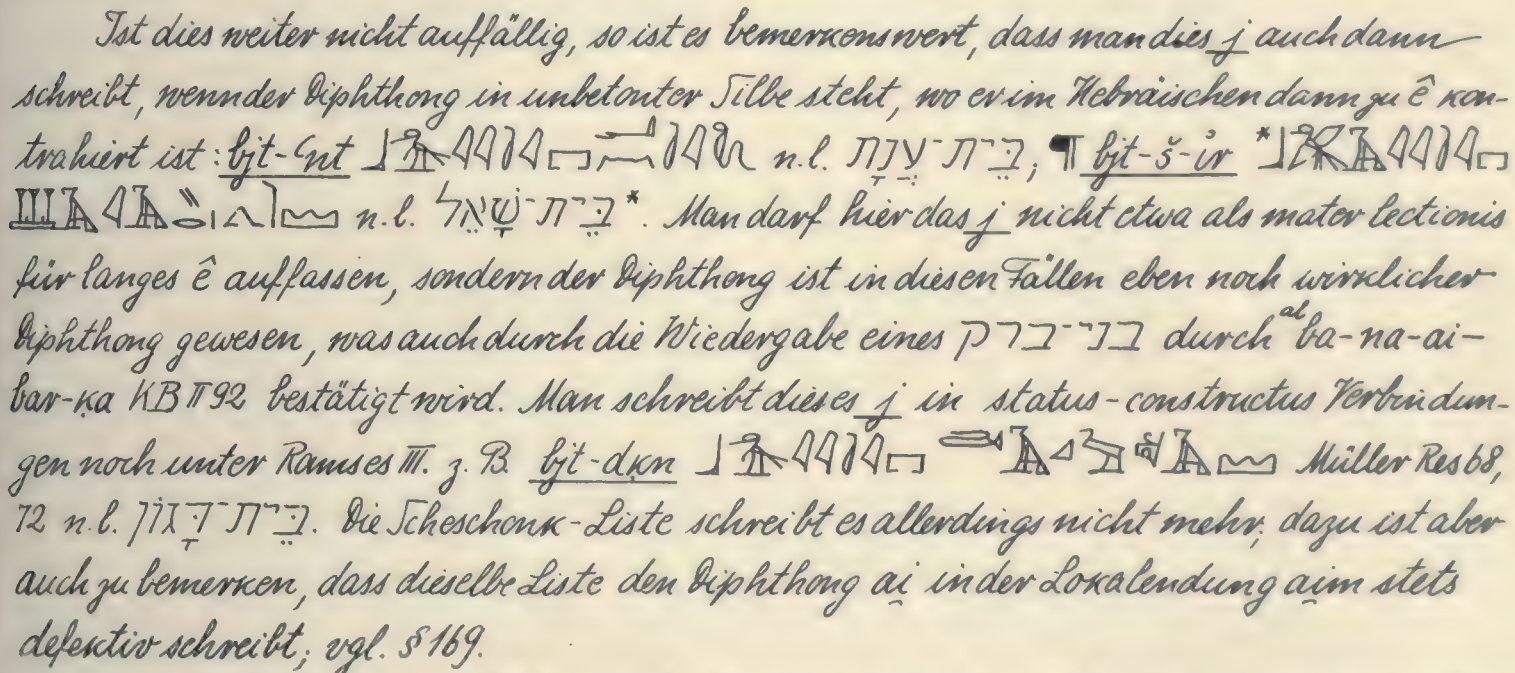 Ist dies weiter nicht auffällig, so ist es bemerkenswert, dass man dies j auch dann
schreibt, wenn der Diphthong in unbetonter Silbe steht, wo er im Hebräischen dann zu ê kon-
trahiert ist: bjt-ʿnt n.l. בֵּית־עֲנָת; ¶ bjt-š-ỉr *
n.l. בֵּית־שְׁאָל*. Man darf hier das j nicht etwa als mater lectionis
für langes ê auffassen, sondern der Diphthong ist in diesen Fällen eben noch wirklicher
Diphthong gewesen, was auch durch die Wiedergabe eines בני־ברק durch ᵃˡba-na-ai-
bar-ḳa KB II 92 bestätigt wird. Man schreibt dieses j in status-constructus Verbindun-
gen noch unter Ramses III. z. B. bjt-dḳn Müller Res 68,
72 n.l. בֵּית־דָּגוֹן. Die Scheschonk-Liste schreibt es allerdings nicht mehr; dazu ist aber
auch zu bemerken, dass dieselbe Liste den Diphthong ai̯ in der Lokalendung ai̯m stets
defektiv schreibt; vgl. § 169.